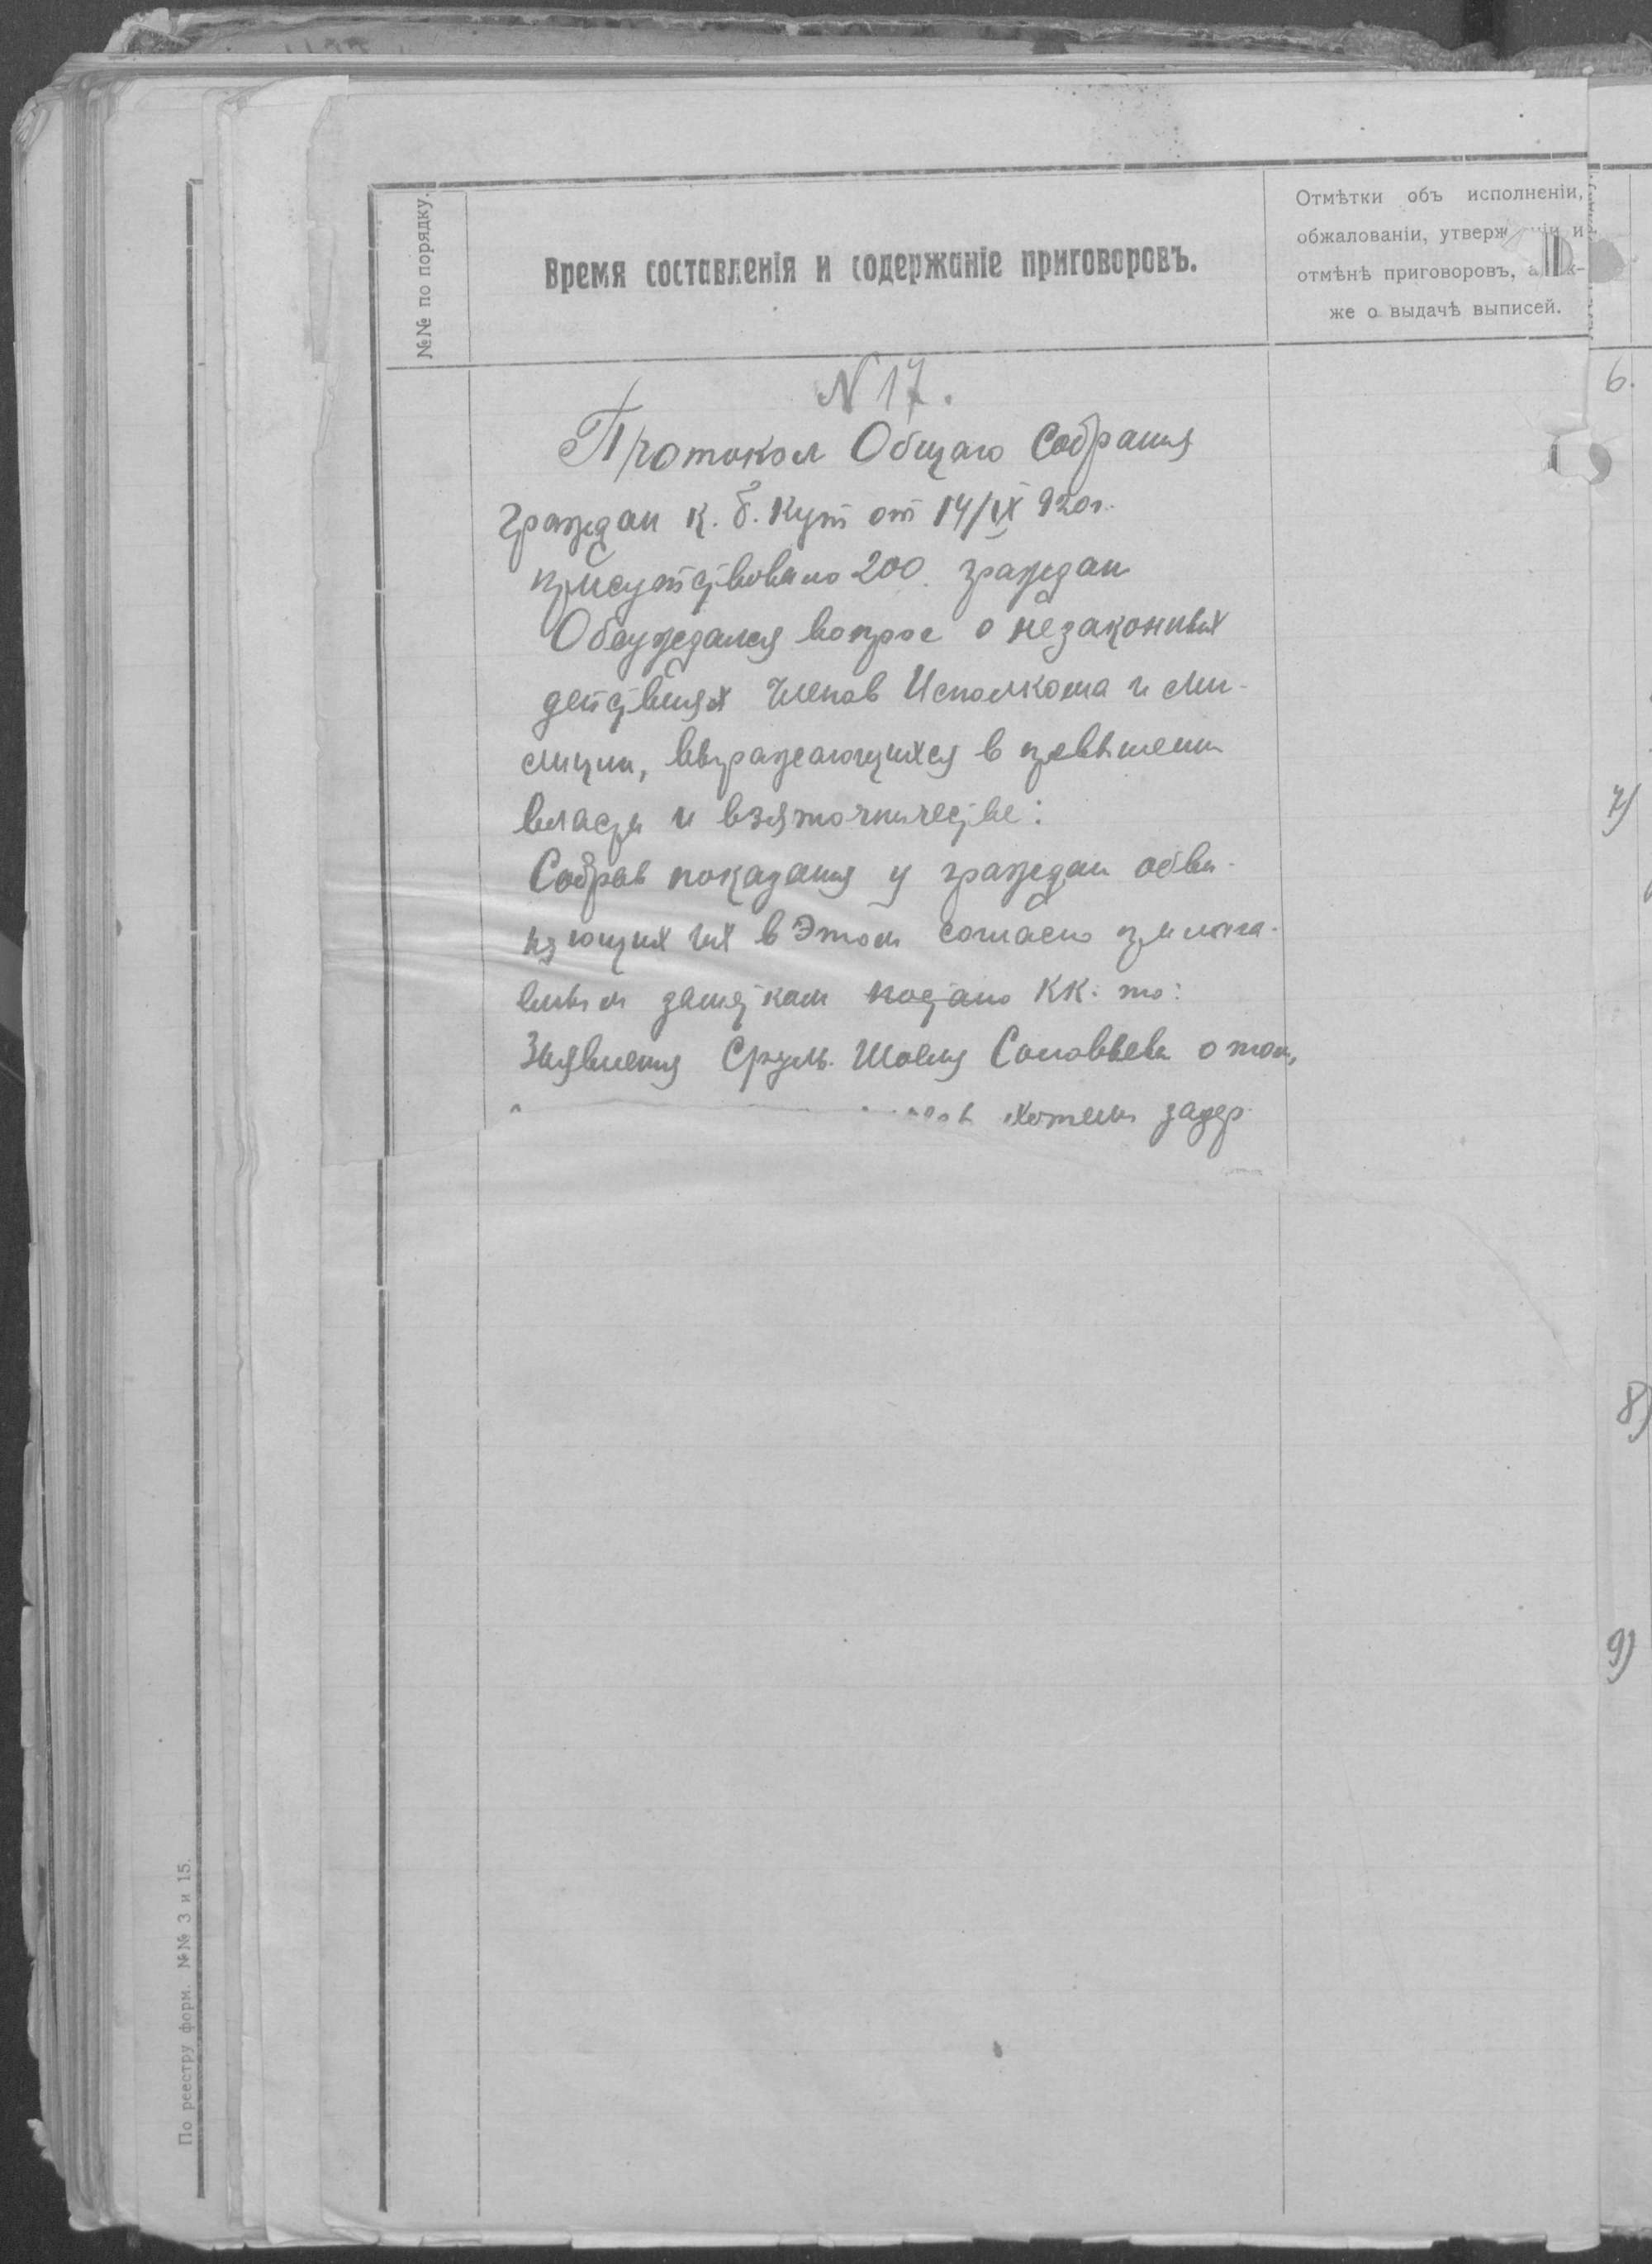 №№ по порядку.
Время составленія и содержаніе приговоровъ.
Отмѣтки объ исполненіи,
обжалованіи, утверж ніи и
отмѣнѣ приговоровъ, а к-
же о выдачѣ выписей.
N 17.
Протокол Общаго Собрания
Граждан к. б. Кут от 14/IX 920 г.
присутствовало 200. граждан
Обсуждался вопрос о незаконных
действиях членов Исполкома и ми-
лиции, выражающихся в превышении
власти и взяточничестве:
Собрав показания у граждан обви-
няющих их в этом согласно прилага-
емым КК. то:
Заявления Сруль. Шоеля Соловьева о том,
хотели задер
6.
7)
8)
9)
По реестру форм. №№ 3 и 15.